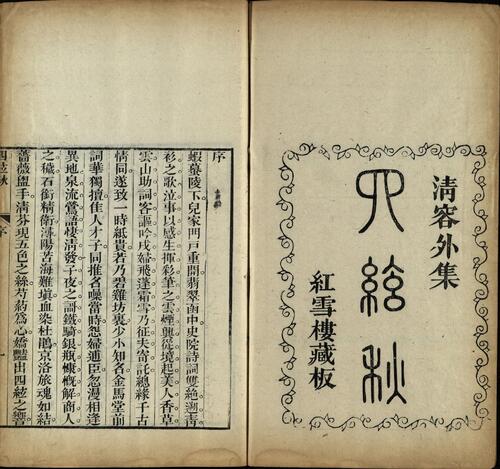 清容外集
四絃秋
紅雪樓藏板
序
蝦蟇陵下兒家門戶重開翡翠函中史院詩詞雙絶溯青
衫之歌泣事以感生揮彩筆之雲煙興從境起美人香草
雲山助詞客謳吟戍婦飛蓬霜雪乃征夫寄託總緣千古
情同遂致一時紙貴若乃碧雞坊裏少小知名金馬堂前
詞華獨擅佳人才子同推名噪當時怨婦逋臣忽漫相逢
異地泉流鶯語悽淸發子夜之謳鐵騎銀瓶慷慨解商人
之穢石銜精衞潯陽苦海難塡血染杜鵑京洛旅魂如結
薔薇盥手淸芬現五色之絲芍藥爲心嬌豔出四絃之響
四絃秋
序
一